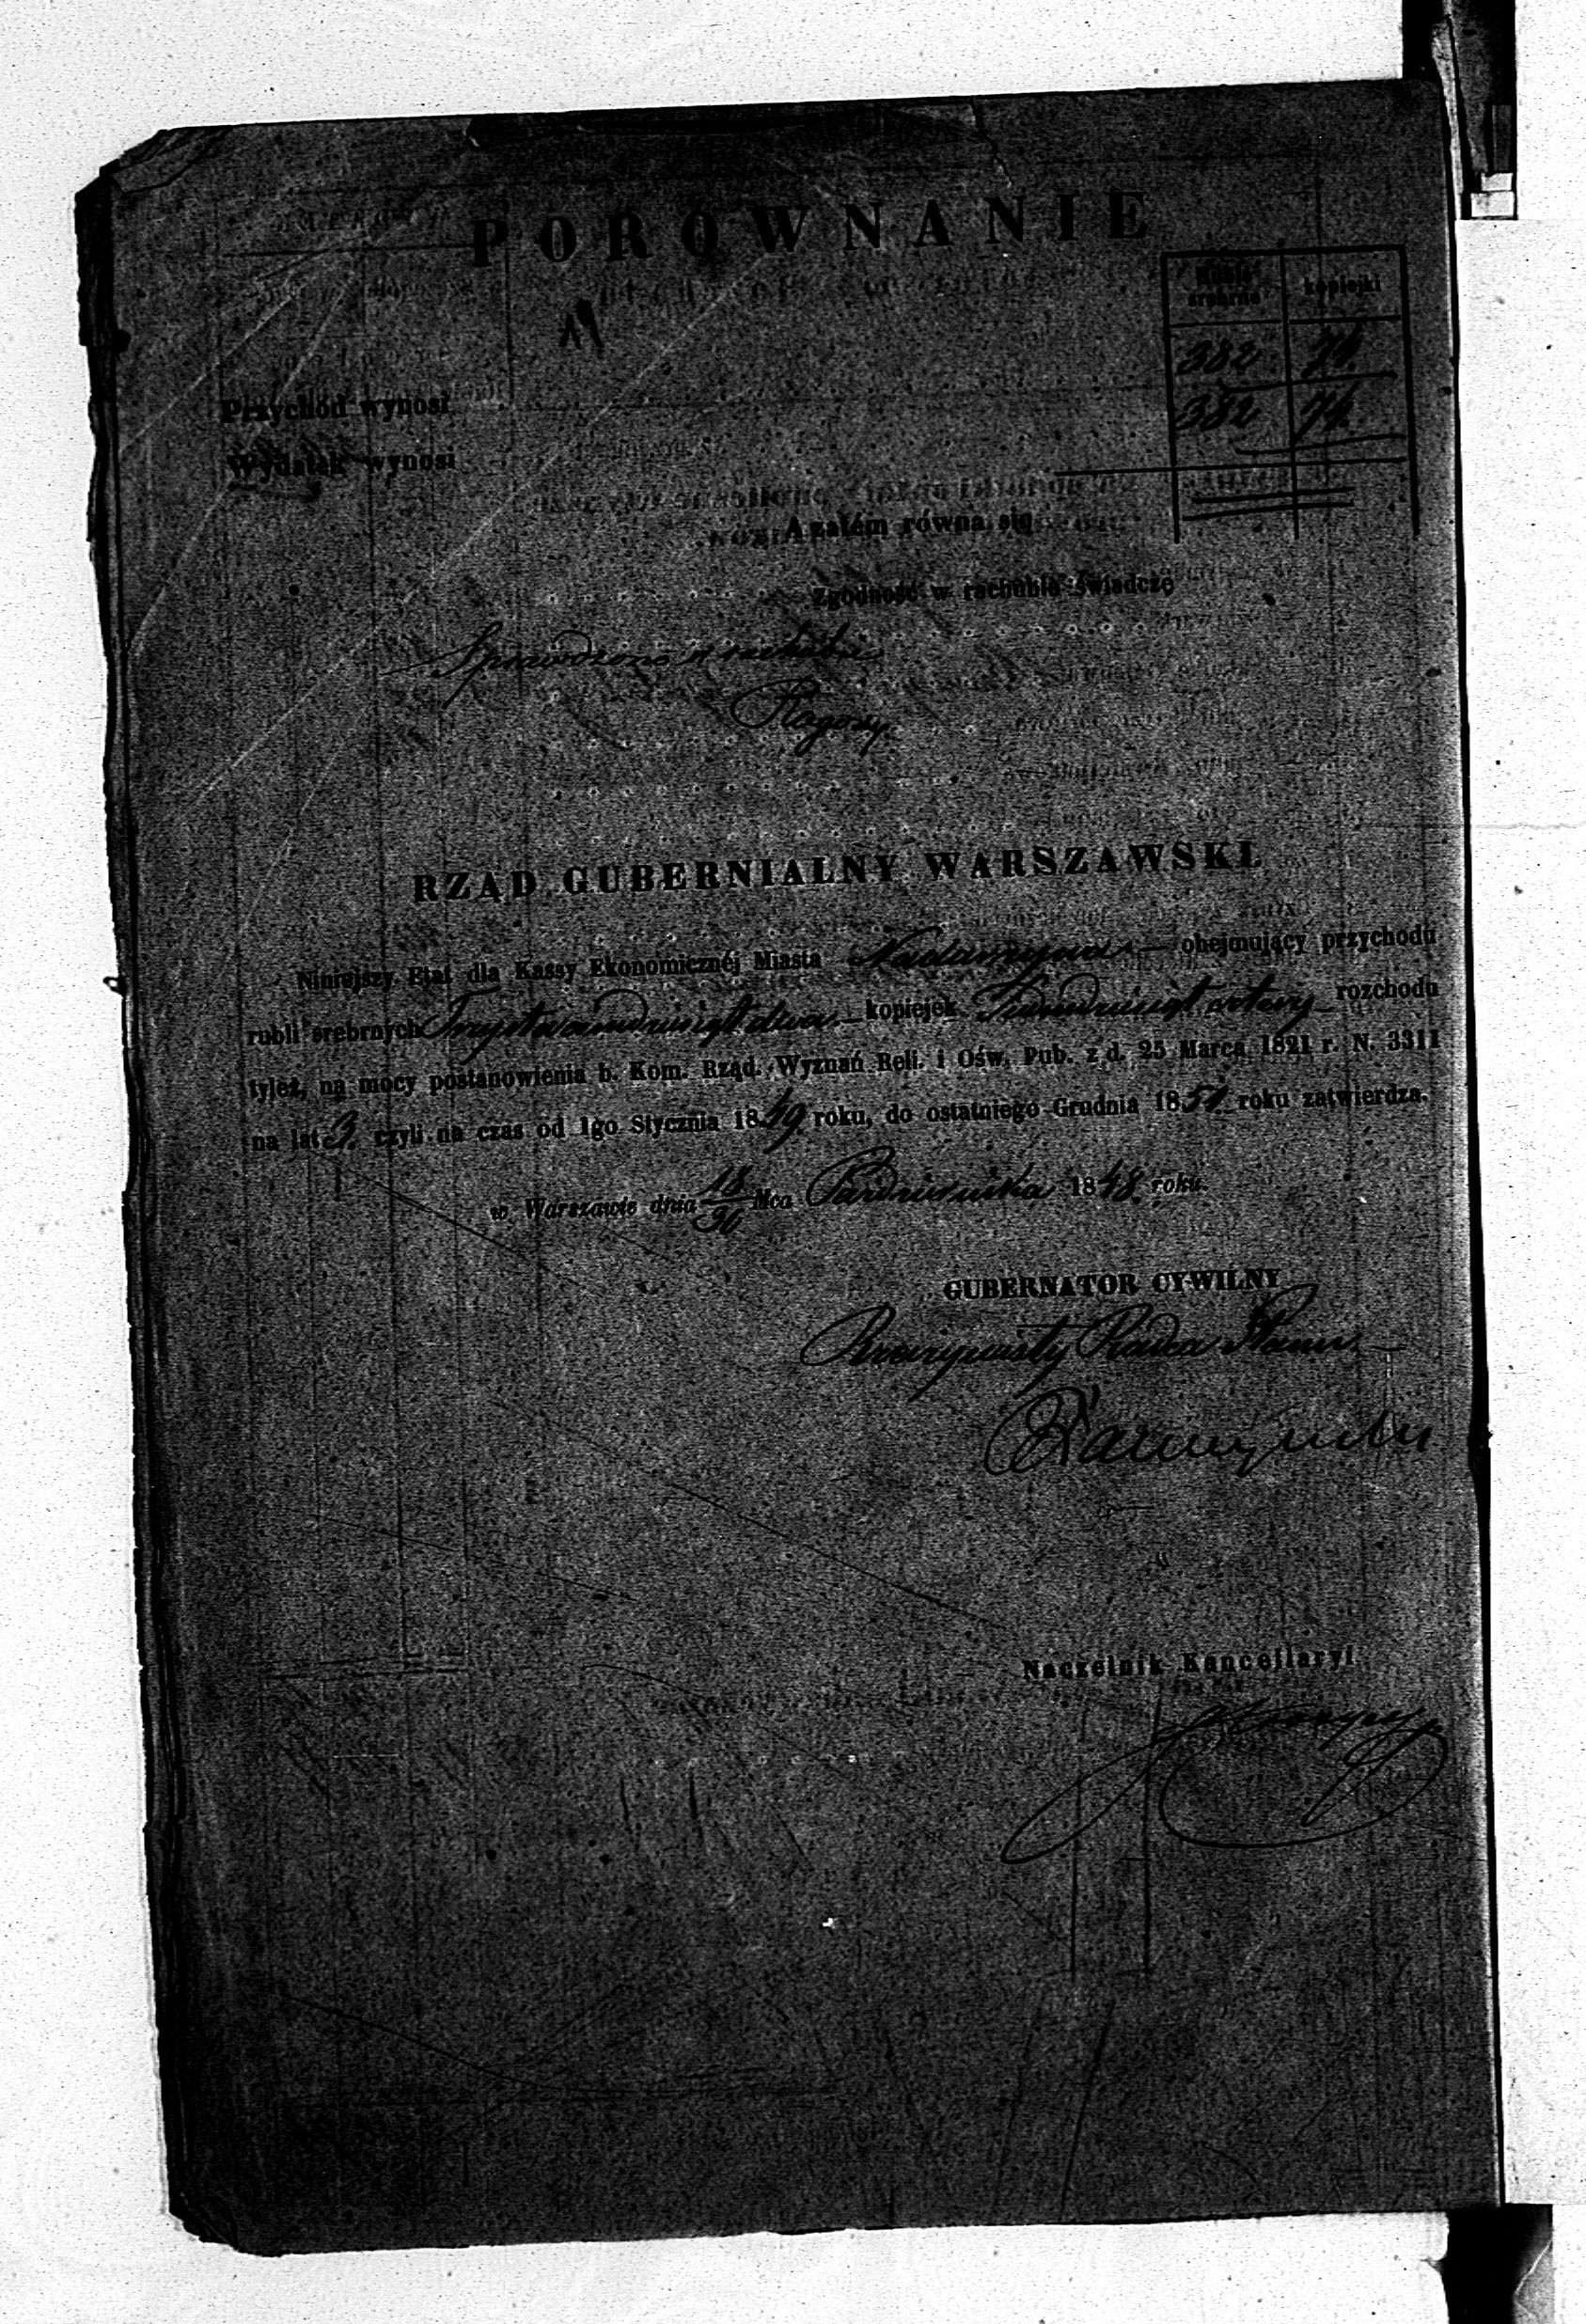 POROWNANIE
Ruble srebrne kopiejki
382 74.
Przychód wynosi 382 74.
Wydatek wynosi
A zatém równa się
Zgodność w rachubie świadczę
Sprawdzono w rachubie
RZĄD GUBERNIALNY WARSZAWSKI.
Niniejszy Etat dla Kassy Ekonomicznéj Miasta Nadarzyna obejmujący przychodu
rubli srebrnych Trzysta ośmdziesiąt dwa kopiejek Siedmdziesiąt cztery rozchodu
tyleż, na mocy postanowienia b. Kom. Rząd. Wyznań Reli. i Ośw. Pub. z d. 25 Marca 1821 r. N. 3311
na lat 3. czyli na czas od 1go Stycznia 1849 roku, do ostatniego Grudnia 1851 roku zatwierdza.
w Warszawie dnia 18/30 Mca Października 1848 roku.
GUBERNATOR CYWILNY
Rzeczywisty Radca Stanu
Naczelnik Kancellaryi